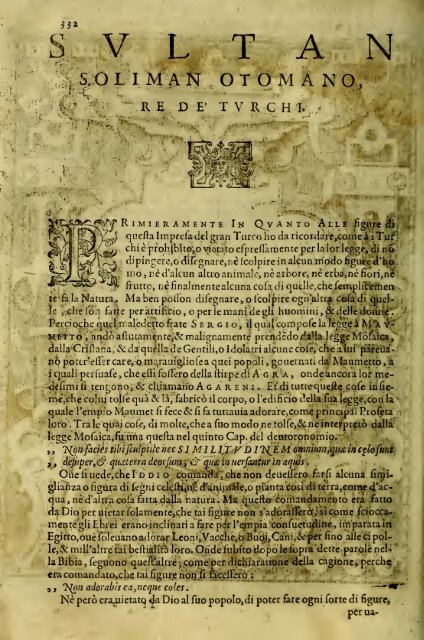 332
SVLTAN
SOLIMAN OTOMANO,
RE DE' TVRCHI.
PRIMIERAMENTE IN QVANTO ALLE figure di
questa Impresa del gran Turco ho da ricordare, come à i Tur
chi è prohibito, o vietato espressamente per la lor legge, di nõ
dipingere, o disegnare, nè scolpire in alcun modo figure d'ho
mo, nè d'alcun altro animale, nè arbore, nè erba, nè fiori, nè
frutto, nè finalmente alcuna cosa di quelle, che semplicemen
te fa la Natura. Ma ben posson disegnare, o scolpire ogn'altra cosa di quel-
le, che son fatte per artificio, o per le mani de gli huomini, & delle donne.
Percioche quel maledetto frate SERGIO, il qual compose la legge à MAV-
METTO, andò astutamente, & malignamente prendẽdo dalla legge Mosaica,
dalla Cristiana, & da quella de Gentili, o Idolatri alcune cose, che a lui parea-
nò poter'esser care, o marauigliose a quei popoli, gouernati da Maumetto, a
i quali persuase, che essi fossero della stirpe di AGRA, onde ancora lor me-
desimi si tengono, & chiamano AGARENI. Et di tutte queste cose insie-
me, che colui tolse quà & là, fabricò il corpo, o l'edificio della sua legge, con la
quale l'empio Maumet si fece & si fa tuttauia adorare, come principal Profeta
loro. Tra le quai cose, di molte, che a suo modo ne tolse, & ne interpretò dalla
legge Mosaica, fu una questa nel quinto Cap. del deutoronomio.
,, Non facies tibi sculptile nec SIMILITVDINEM omnium, quæ in cælo sunt
,, desuper, & quæ terra deorsum, & quæ in versantur in aquis.
Oue si uede, che IDDIO comanda, che non deuessero farsi alcuna simi-
glianza o figura di segni celesti, nè d'animale, o pianta cosi di terra, come d'ac-
qua, nè d'altra cosa fatta dalla natura. Ma questo comandamento era fatto
da Dio per uietar solamente, che tai figure non s'adorassero, sì come sciocca-
mente gli Ebrei erano inclinati a fare per l'empia consuetudine, imparata in
Egitto, oue soleuano adorar Leoni, Vacche, o Buoi, Cani, & per sino alle ci pol-
le, & mill'altre tai bestialità loro. Onde subito dopo le sopra dette parole nel-
la Bibia, seguono quest'altre; come per dichiaratione della cagione, perche
era comandato, che tai figure non si facessero:
,, Non adorabis ea, neque coles.
Nè però era uietato da Dio al suo popolo, di poter fare ogni sorte di figure,
per ua-